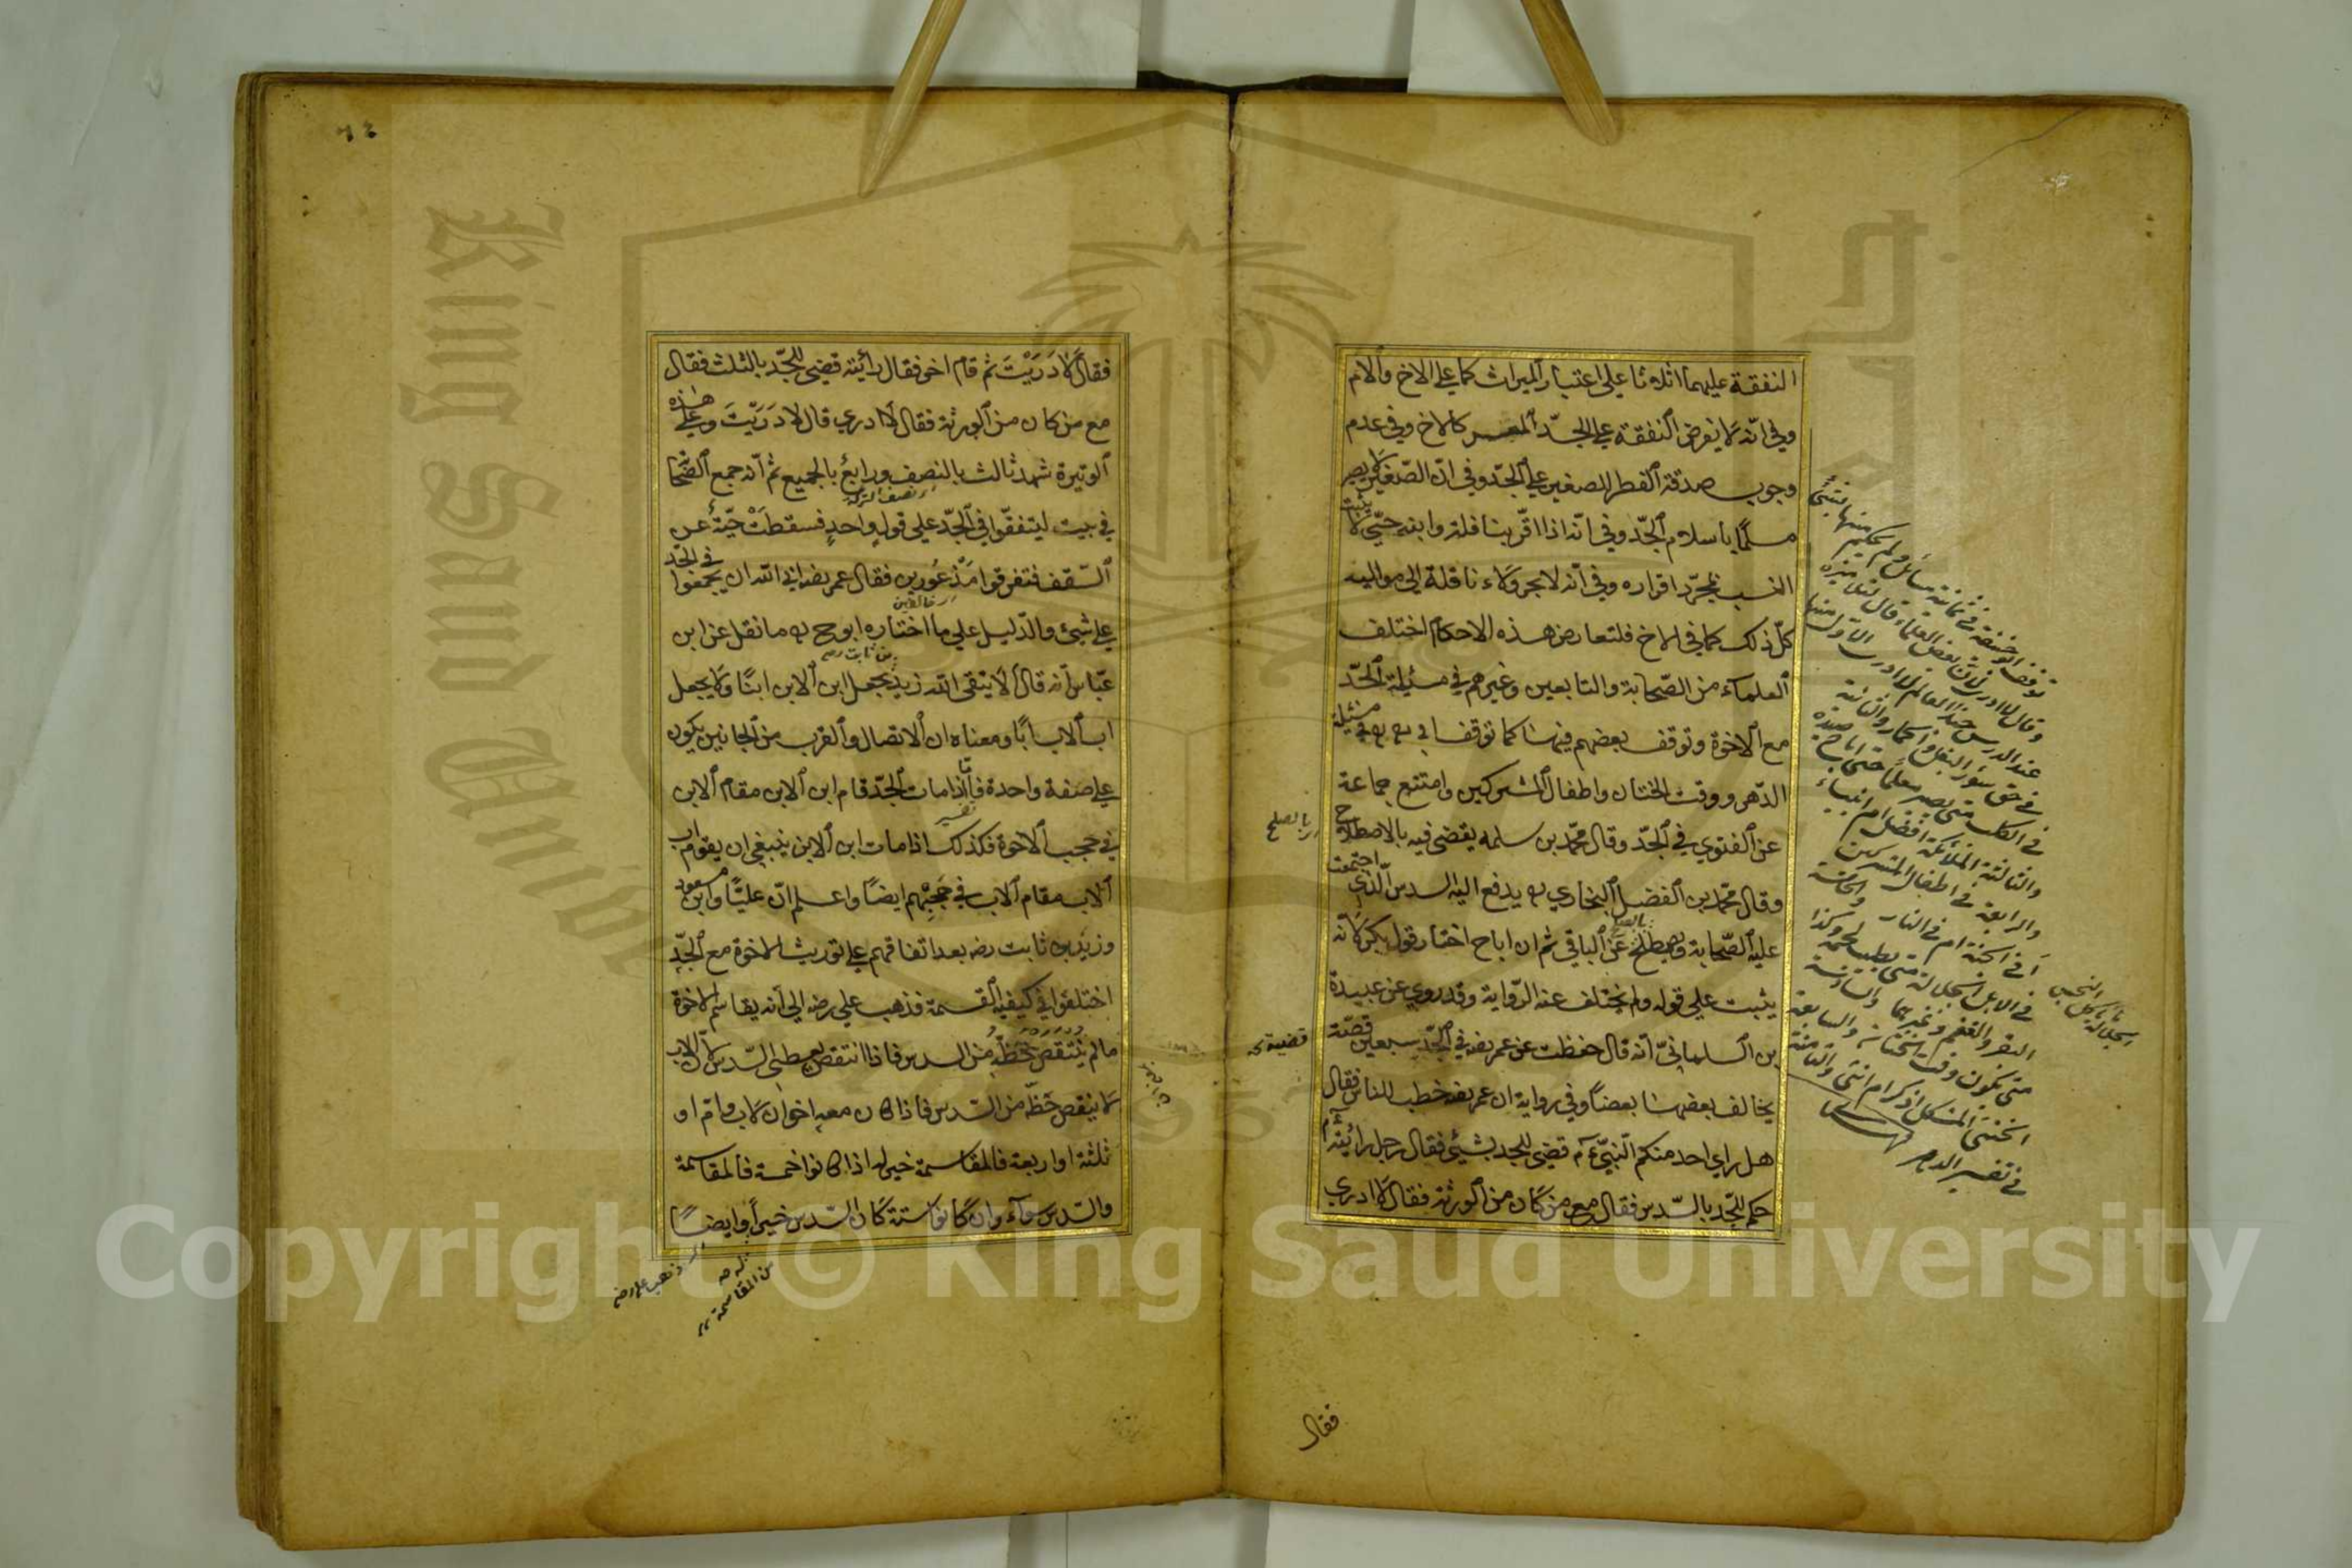 النفقة عليهما اثلاثا على اعتبار الميراث كما على الاخ والام
وفي انّه لا يفرض النفقة على الجدّ المعسر كالاخ وفي عدم
وجوب صدقة الفطر للصغير على الجدّ وفي انّ الصّغير لا يصير
مسلمًا باسلام الجدّ وفي انّه اذا اقرّ بنافلة وابنه حيّ لا يثبت
النسب بمجرّد اقراره وفي انّه لا يجر ولاء نافلة الى مواليه
كلّ ذلك كما في الاخ فلتعارض هذه الاحكام اختلف
العلماء من الصّحابة والتابعين وغيرهم في مسئلة الجدّ
مع الاخوة وتوقف بعضهم فيها كما توقف ابو ح في مسئلة
الدّهر ووقت الختان واطفال المشركين وامتنع جماعة
عن الفتوي في الجدّ وقال محمّد بن سلمه يقضى فيه بالاصطلاح
وقال محمّد بن الفضل البخاري يدفع اليه السدس الّذي اجتمعت
عليه الصّحابة ويصطلح عن الباقي ثم ان اباح اختار قول بكر لانّه
يثبت على قوله ولم يختلف عنه الرّواية وقد روي عن عبيدة
بن السلمانيّ انّه قال حفظت عن عمر رضه في الجدّ سبعين قصّة
يخالف بعضها بعضاً وفي رواية ان عمر رضه خطب للناس فقال
هل راي احد منكم النّبيّ ءم قضى للجد بشيئ فقال رجل رايته
حكم للجّد بالسّدس فقال مع من كان من الورثة فقال لا ادري
بالصلح
قضية
توقف ابو حنيفة في ثمانية مسائل ولم يحكم منها بشئ
وقال لا ادرى
في سؤر البغل والحمار والثانية
في الكلب متى يصير معلما
والثالثة الملائكة افضل ام انبياء
والرابعة في اطفال المشركين
أفي الجنة ام في النار والخامسة
البقر والغنم وغيرهما والسادسة
الخنثى المشكل اذكر ام انثى والثامنة
في تفسير الدهر
فقال
٦٤
فقال لا دَرَيْتَ ثم قام اخر فقال رأيته قضى للجّد بالثلث فقال
مع من كان من الورثة فقال لا ادري قال لا دَرَيْتَ وعلى هذه
الوتيرة شهد ثالث بالنصف ورابعٌ بالجميع ثم انّه جمع الصّحابة
في بيت ليتفقّوا في الجدّ على قول واحدٍ فسقطتْ حيّة من
السّقف فتفرقوا مذعورين فقال عمر رضه ابى الله ان يجمعوا في الجدّ
على شيئ والدّليل على ما اختاره ابو ح ما نقل عن ابن
عبّاس انّه قال ألا يتقى الله زيد يجعل ابن الابن ابنًا ولا يجعل
اب الاب أبًا ومعناه ان الاتصال والقرب من الجانبين يكون
على صفة واحدة فاذا مات الجدّ قام ابن الابن مقام الابن
في حجب الاخوة فكذلك اذا مات ابن الابن ينبغي ان يقوم اب
الاب مقام الاب في حجبهم ايضًا واعلم انّ عليًّا وابن مسعود
وزيد بن ثابت رضه بعد اتفاقهم على توريث الاخوة مع الجدّ
اختلفوا في كيفية القسمة فذهب علي رضه الى انّه يقاسم الاخوة
ما لم ينتقص حظّه من السدس فاذا انتقص يعطى السّدس لان الاب
لا ينقص حظّه من السّدس فاذا كان معه اخوان لاب وام او
ثلثة او اربعة فالمقاسمة خير له اذا كانوا خمسة فالمقاسمة
والسّدس سوآء وان كانوا ستة كان السّدس خيراً وايضًا
من المقاسمة
Copyright © King Saud University
King Saud University